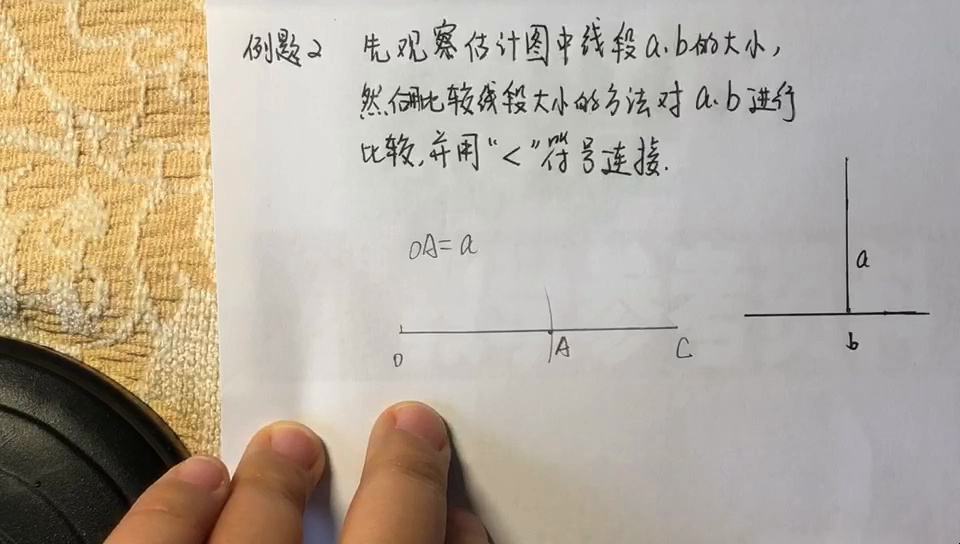 例题2 先观察估计图中线段a、b的大小,
然后用比较线段大小的方法对a、b进行
比较,并用“<”符号连接.
OA=a
a
O A C
b